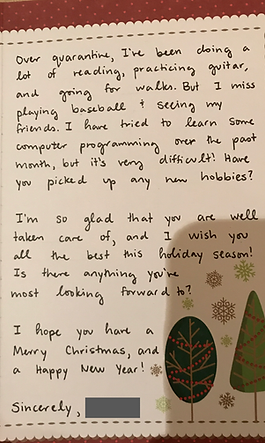 Over quarantine, I've been doing a
lot of reading, practicing guitar,
and going for walks. But I miss
playing baseball & seeing my
friends. I have tried to learn some
computer programming over the past
month, but it's very difficult! Have
you picked up any new hobbies?
I'm so glad that you are well
taken care of, and I wish you
all the best this holiday season!
Is there anything you've
most looking forward to?
I hope you have a
Merry Christmas, and
a Happy New Year!
Sincerely,